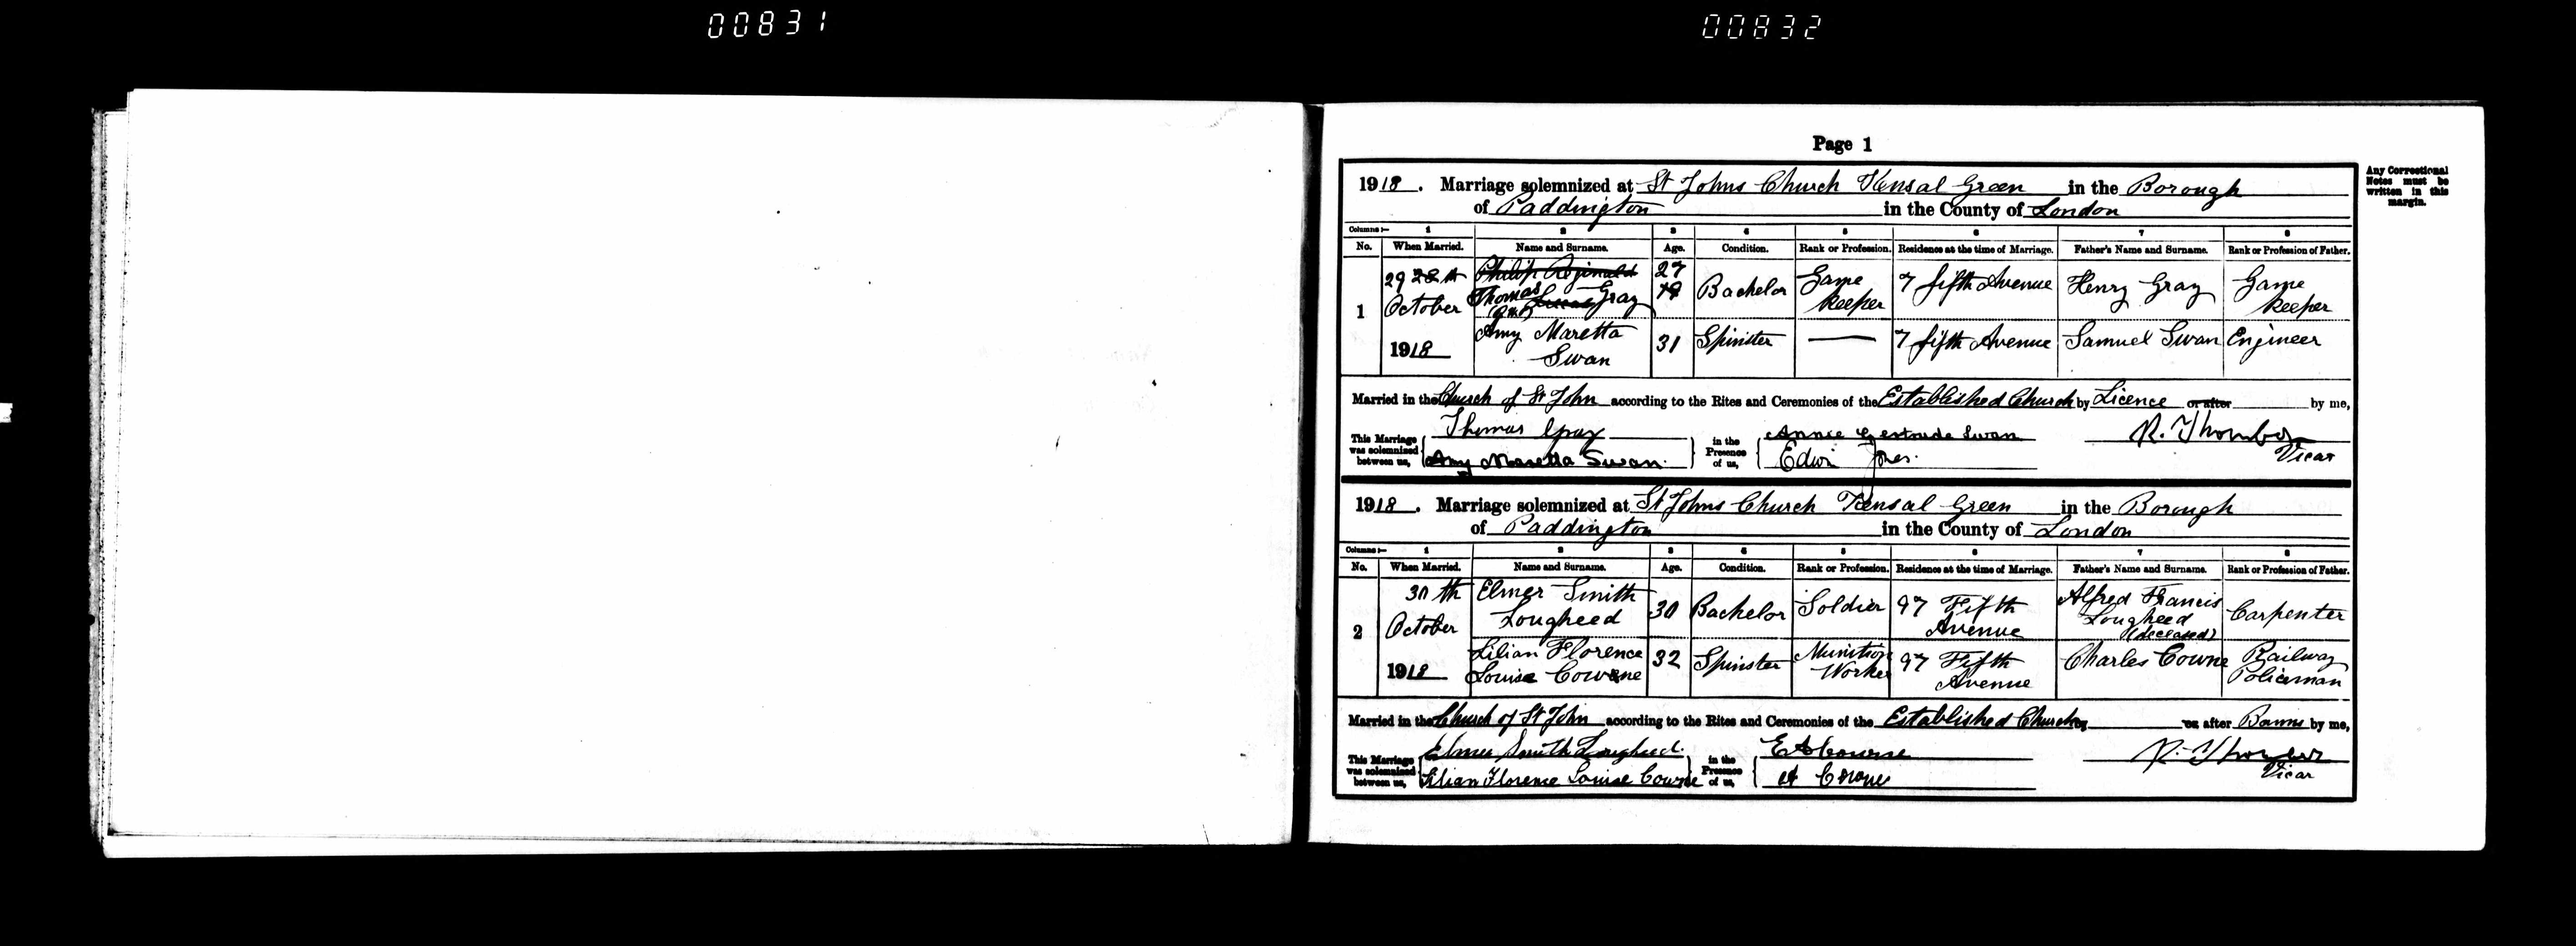 00831
00832
Page 1
Any Correctional
Notes must be
written in this
margin.
1918. Marriage solemnized at St Johns Church Kensal Green in the Borough
of Paddington in the County of London
Columns:— 1 2 3 4 5 6 7 8
No. When Married. Name and Surname. Age. Condition. Rank or Profession. Residence at the time of Marriage. Father's Name and Surname. Rank or Profession of Father.
1 29 28th October 1918 Philip Reginald Thomas Lucas Gray 27 Bachelor Game keeper 7 fifth Avenue Henry Gray Game keeper
Amy Maretta Swan 31 Spinster — 7 fifth Avenue Samuel Swan Engineer
Married in the Church of St John according to the Rites and Ceremonies of the Established Church by Licence or after by me,
This Marriage was solemnized between us, Thomas Gray in the Presence of us, Annie Gertrude Swan R. Thornber
Amy Maretta Swan. Edwin Jones. Vicar
1918. Marriage solemnized at St Johns Church Kensal Green in the Borough
of Paddington in the County of London
Columns:— 1 2 3 4 5 6 7 8
No. When Married. Name and Surname. Age. Condition. Rank or Profession. Residence at the time of Marriage. Father's Name and Surname. Rank or Profession of Father.
2 30th October 1918 Elmer Smith Lougheed 30 Bachelor Soldier 97 Fifth Avenue Alfred Francis Lougheed (deceased) Carpenter
Lilian Florence Louise Cowne 32 Spinster Munition Worker 97 Fifth Avenue Charles Cowne Railway Policeman
Married in the Church of St John according to the Rites and Ceremonies of the Established Church by or after Banns by me,
This Marriage was solemnized between us, Elmer Smith Lougheed. in the Presence of us, R. Thornber
Lilian Florence Louise Cowne Vicar